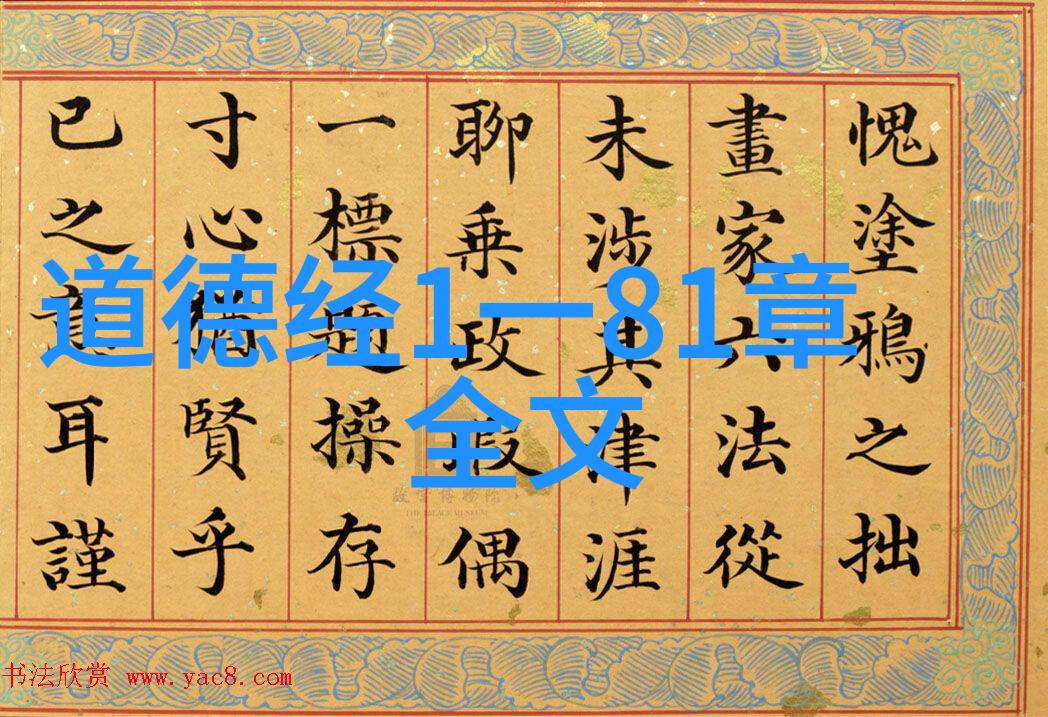 愧塗鴉之拙
畫家六法從
未涉其津涯
聊乘政假偶
一標題操存
寸心猶賢乎
已之意耳謹
道德经1—81章
全文
故宫博物院
THE PALACE MUSEUM
书法欣赏 www.yac8.com